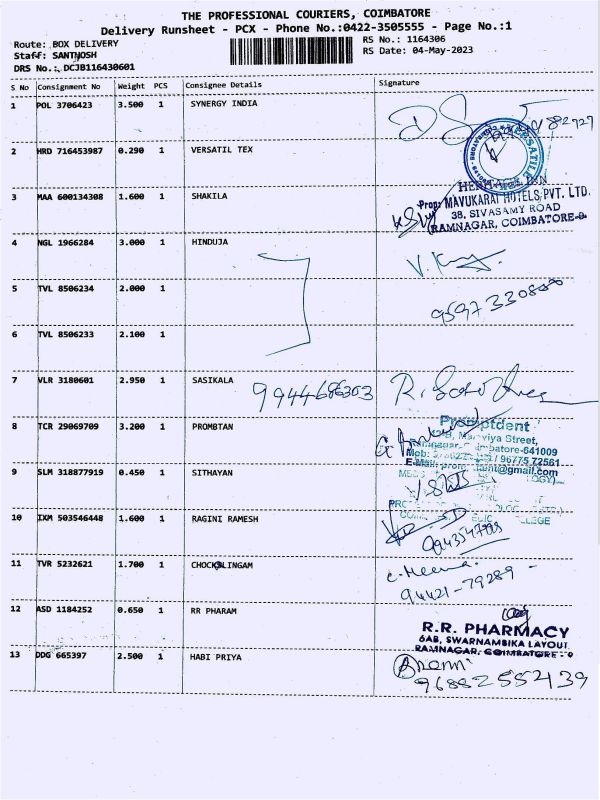 THE PROFESSIONAL COURIERS, COIMBATORE
Delivery Runsheet - PCX - Phone No.:0422-3505555 - Page No.:1
Route: BOX DELIVERY
RS No.: 1164306
Staff: SANTHOSH
RS Date: 04-May-2023
DRS No.: DCJB116430601
S No Consignment No Weight PCS Consignee Details Signature
1 POL 3706423 3.500 1 SYNERGY INDIA
2 HRD 716453987 0.290 1 VERSATIL TEX
3 MAA 600134308 1.600 1 SHAKILA
Prop: MAVUKARAI HOTELS PVT. LTD.
38, SIVASAMY ROAD
RAMNAGAR, COIMBATORE-9
4 NGL 1966284 3.000 1 HINDUJA
5 TVL 8506234 2.000 1
6 TVL 8506233 2.100 1
7 VLR 3180601 2.950 1 SASIKALA 9944686303
8 TCR 29069709 3.200 1 PROMBTAN
Promptdent
Street,
641009
/ 96775 72561
@gmail.com
9 SLM 318877919 0.450 1 SITHAYAN
10 IXM 503546448 1.600 1 RAGINI RAMESH
11 TVR 5232621 1.700 1 CHOCKALINGAM
C. Meena
94421-79289
12 ASD 1184252 0.650 1 RR PHARAM
R.R. PHARMACY
6AB, SWARNAMBIKA LAYOUT
RAMNAGAR, COIMBATORE - 9
13 DDG 665397 2.500 1 HABI PRIYA
96882552439